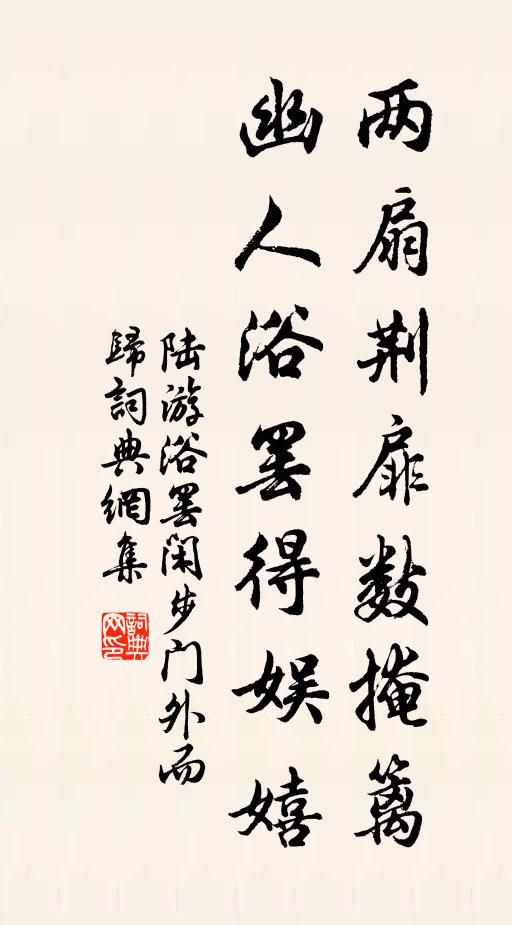 两扇荆扉数掩篱
幽人浴罢得娱嬉
陆游浴罢闲步门外而
歸詞典網集
詞典网印